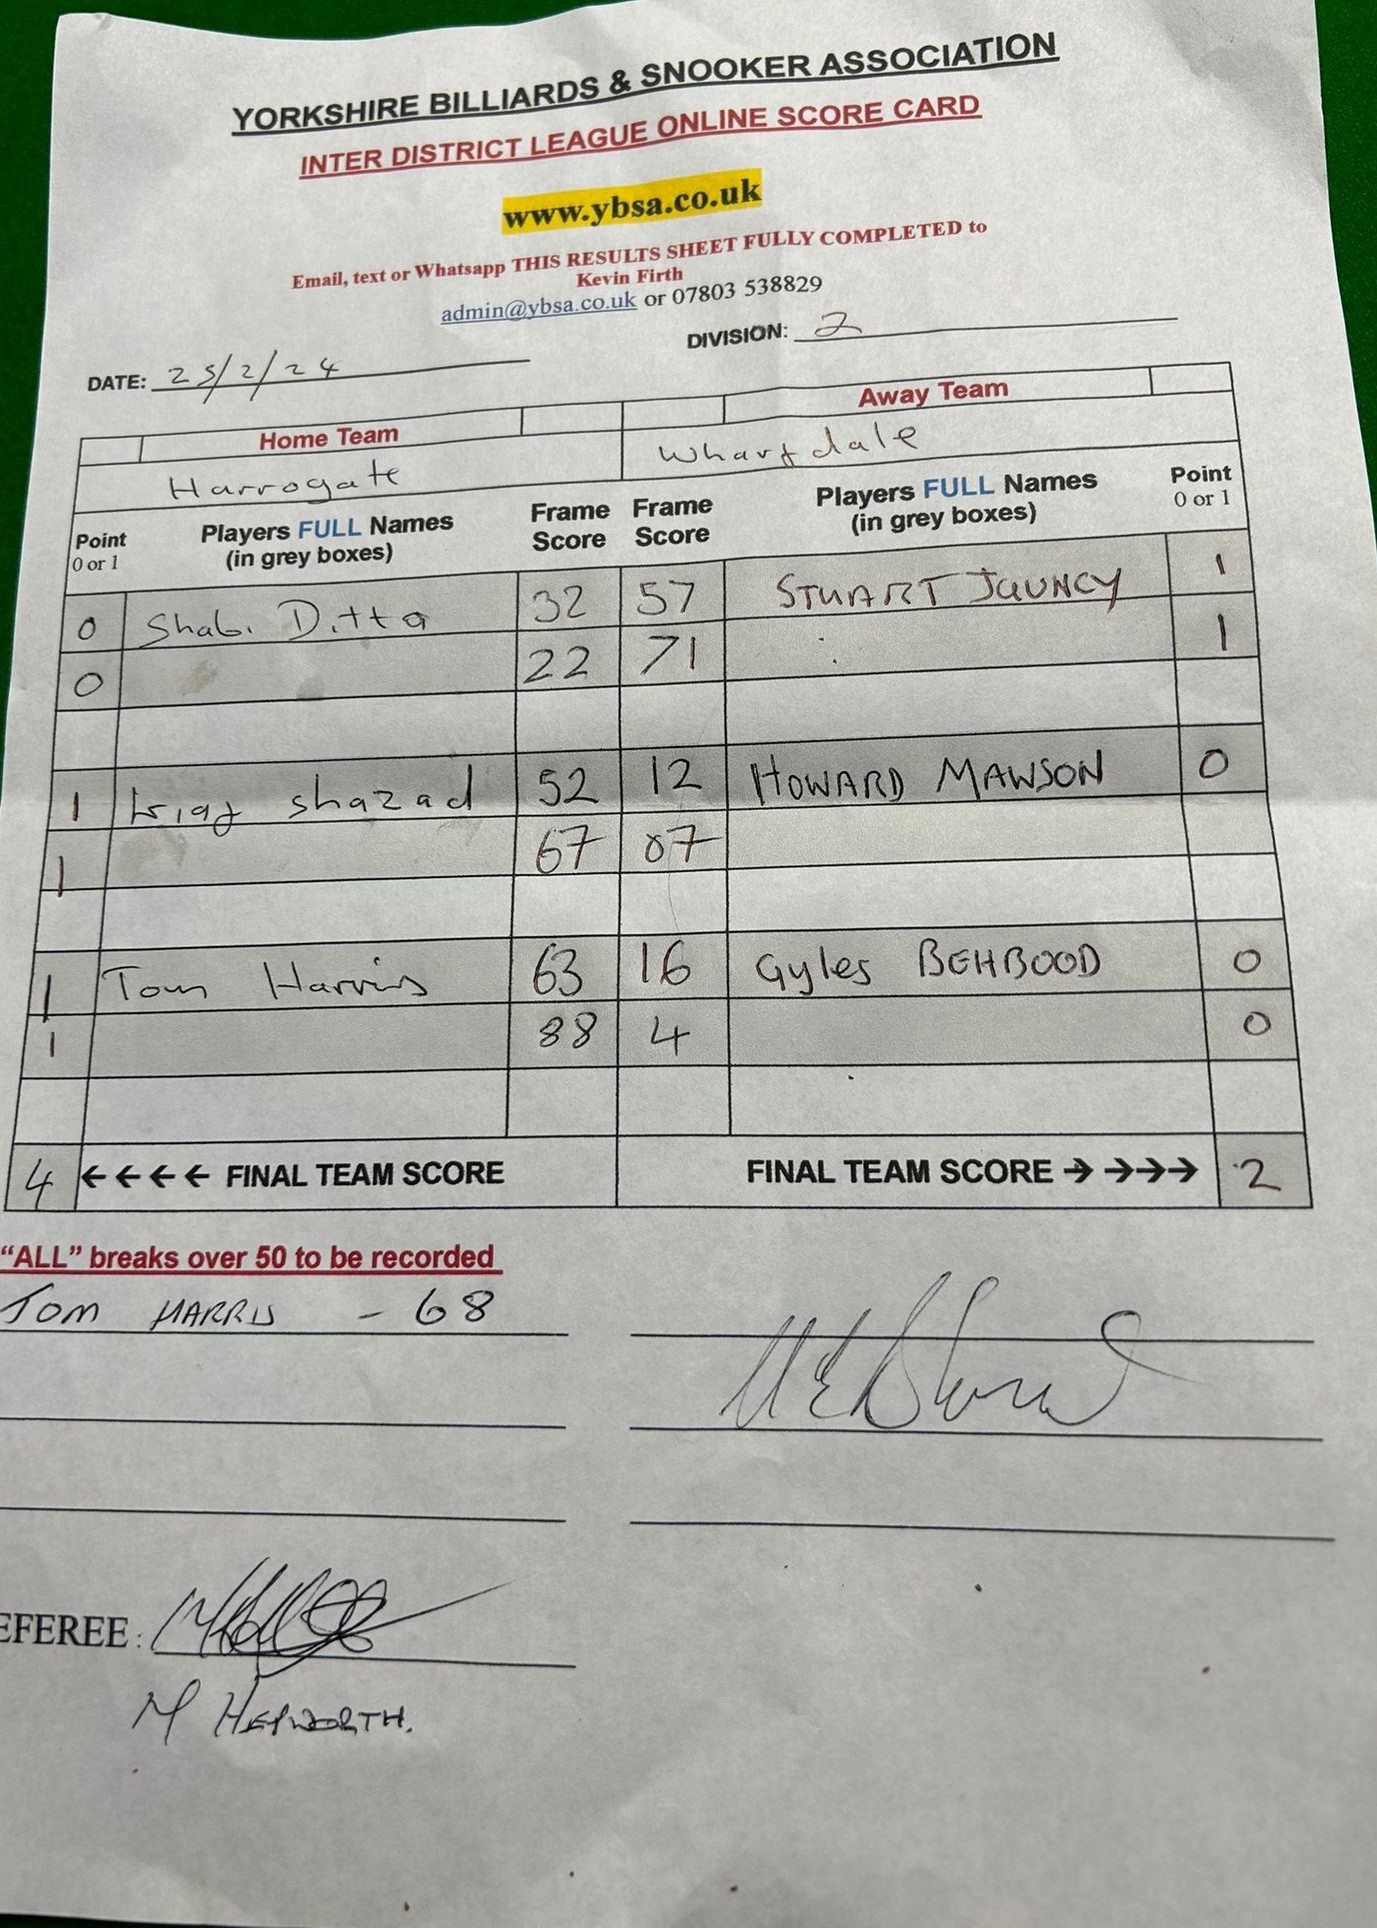 YORKSHIRE BILLIARDS & SNOOKER ASSOCIATION
INTER DISTRICT LEAGUE ONLINE SCORE CARD
www.ybsa.co.uk
Email, text or Whatsapp THIS RESULTS SHEET FULLY COMPLETED to
Kevin Firth
admin@ybsa.co.uk or 07803 538829
DATE: 25/2/24 DIVISION: 2
Home Team Away Team
Harrogate Wharfdale
Point 0 or 1 Players FULL Names (in grey boxes) Frame Score Frame Score Players FULL Names (in grey boxes) Point 0 or 1
0 Shabi Ditta 32 57 STUART JAUNCY 1
0 22 71 1
1 shazad 52 12 HOWARD MAWSON 0
1 67 07
1 Tom Harris 63 16 Gyles BEHBOOD 0
1 88 4 0
4 ←←←← FINAL TEAM SCORE FINAL TEAM SCORE →→→→ 2
“ALL” breaks over 50 to be recorded
TOM HARRIS - 68
EFEREE:
M HEPWORTH.